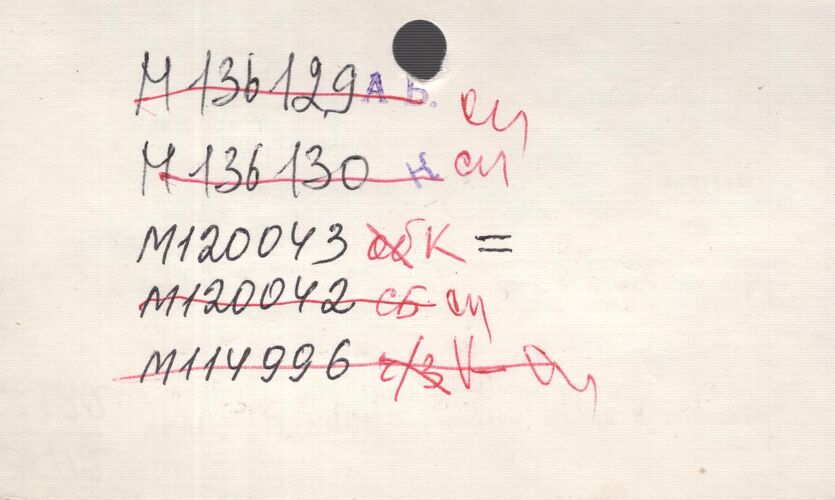 М 136129 А Б. сц
М 136130 Н сц
М120043 об К =
М120042 сБ сц
М114996 ч/з V сц